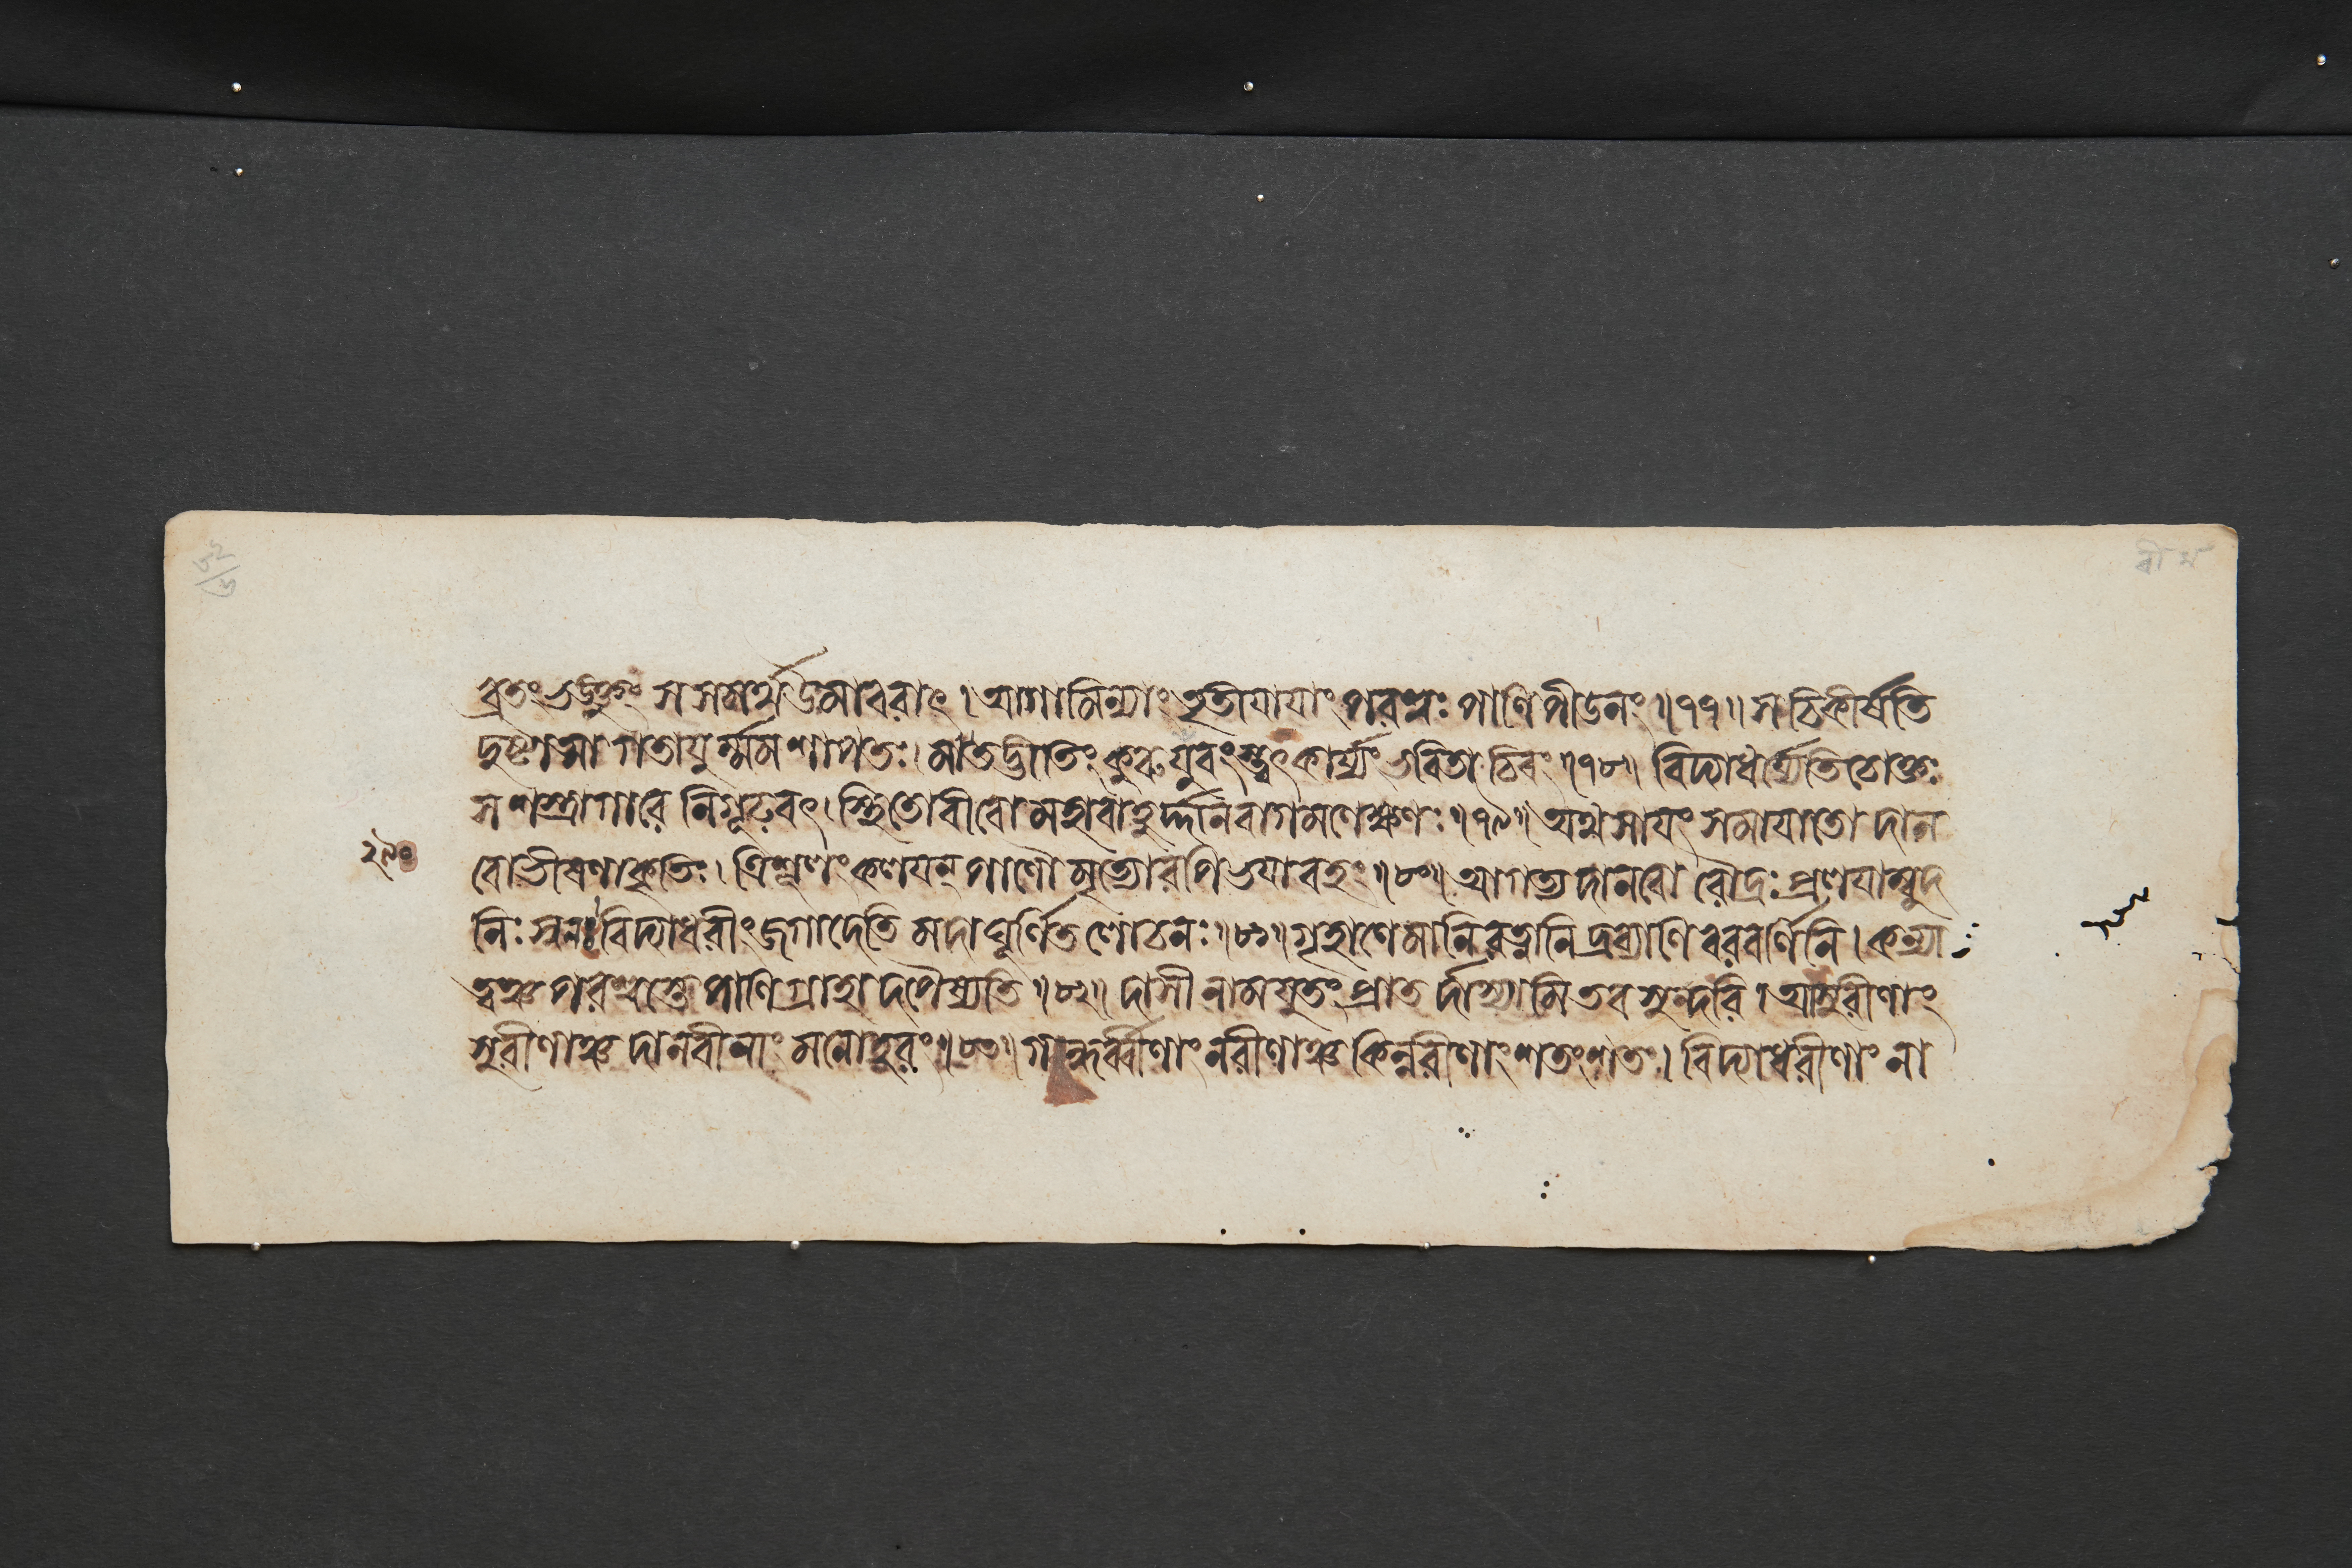 ব্রতং ভঙ্ক্তুং স সমর্থউমাবরাৎ । আগামিন্যাং তৃতীযাযাং পরশ্বঃ পাণিপীডনং ॥ ৭৭ ॥ স চিকীর্ষতি
দুষ্টাত্মা গতাযুর্ম্মম শাপতঃ । মাতদ্ভীতিং কুরু যুবংস্ত্বৎকার্য্যং ভবিতা চিরং ॥ ৭৮ ॥ বিদ্যাধর্য্যেতি চোক্তঃ
স শস্ত্রাগারে নিগূঢবৎ । স্থিতো বীরো মহাবাহুর্দ্দানবাগমনেক্ষণঃ ॥ ৭৯ ॥ অথ সাযং সমাযাতো দান
বো ভীষণাকৃতিঃ । ত্রিশূলং কলযন্ পাণৌ মৃত্যোরপি ভযাবহং ॥ ৮০ ॥ আগত্য দানবো রৌদ্রঃ প্রলযাম্বুদ
নিঃস্বনঃ বিদ্যাধরীং জগাদেতি মদাঘূর্ণিতলোচনঃ ॥ ৮১ ॥ গৃহাণেমানি রত্নানি দ্রব্যাণি বরবর্ণিনি । কন্যা
ত্বঞ্চ পরশ্বস্তে পাণিগ্রাহাদপৈষ্যতি ॥ ৮২ ॥ দাসীনামযুতং প্রাতর্দাস্যামি তব সুন্দরি । আসুরীণাং
সুরীণাঞ্চ দানবীনাং মনোহরং ॥ ৮৩ ॥ গন্ধর্ব্বীণাং নরীণাঞ্চ কিন্নরীণাং শতং শতং । বিদ্যাধরীণাং না
২৯০